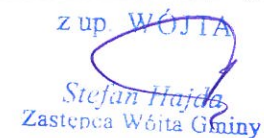 z up. WÓJTA
Stefan Hajda
Zastępca Wójta Gminy